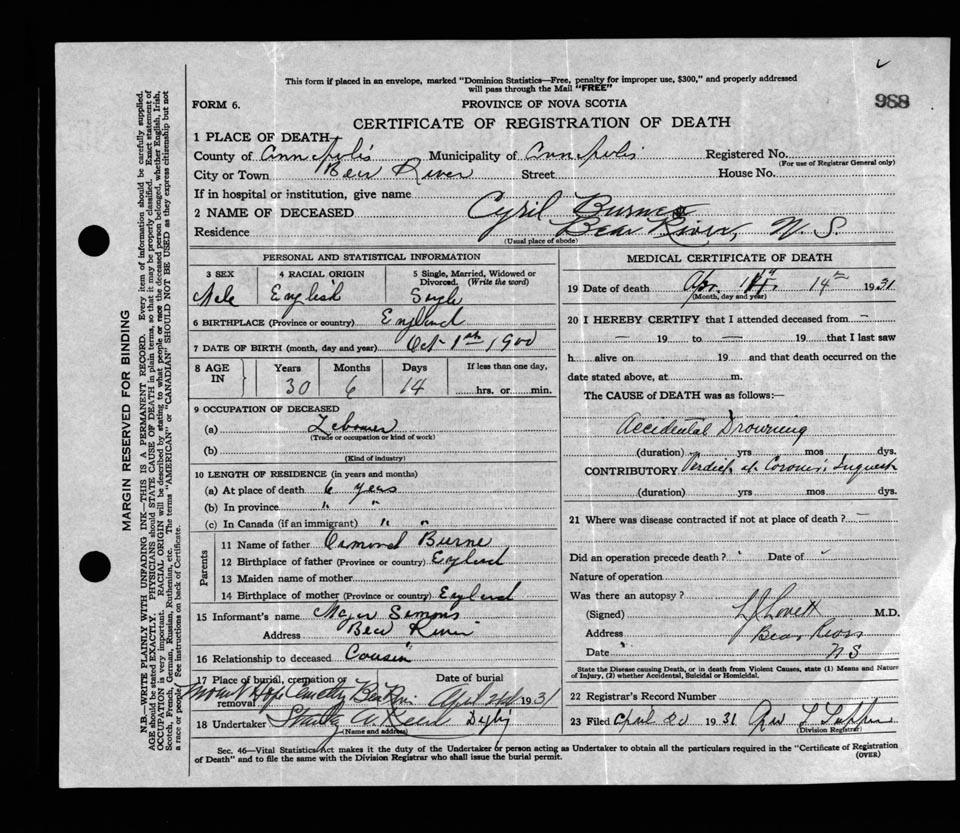 This form if placed in an envelope, marked "Dominion Statistics—Free, penalty for improper use, $300," and properly addressed
will pass through the Mail "FREE"
988
FORM 6.
PROVINCE OF NOVA SCOTIA
CERTIFICATE OF REGISTRATION OF DEATH
1 PLACE OF DEATH
County of Annapolis Municipality of Annapolis Registered No.
(For use of Registrar General only)
City or Town Bear River Street House No.
If in hospital or institution, give name
2 NAME OF DECEASED Cyril Burne
Residence Bear River, N. S.
(Usual place of abode)
PERSONAL AND STATISTICAL INFORMATION
3 SEX 4 RACIAL ORIGIN 5 Single, Married, Widowed or Divorced. (Write the word)
Male English Single
6 BIRTHPLACE (Province or country) England
7 DATE OF BIRTH (month, day and year) Oct 1st 1900
8 AGE IN Years Months Days If less than one day,
30 6 14 hrs. or min.
9 OCCUPATION OF DECEASED
(a) Laborer
(Trade or occupation or kind of work)
(b)
(Kind of industry)
10 LENGTH OF RESIDENCE (in years and months)
(a) At place of death 6 years
(b) In province " "
(c) In Canada (if an immigrant) " "
Parents
11 Name of father Osmond Burne
12 Birthplace of father (Province or country) England
13 Maiden name of mother
14 Birthplace of mother (Province or country) England
15 Informant's name Major Simons
Address Bear River
16 Relationship to deceased Cousin
17 Place of burial, cremation or removal Date of burial
Mount Hope Cemetery Bear River April 1931
18 Undertaker Digby
(Name and address)
MEDICAL CERTIFICATE OF DEATH
19 Date of death Apr. 14th 1931
(Month, day and year)
20 I HEREBY CERTIFY that I attended deceased from —
— 19 to — 19 that I last saw
h alive on 19 and that death occurred on the
date stated above, at m.
The CAUSE of DEATH was as follows:—
Accidental Drowning
(duration) yrs mos dys.
CONTRIBUTORY Verdict at Coroner's Inquest
(duration) yrs mos dys.
21 Where was disease contracted if not at place of death? —
Did an operation precede death? Date of
Nature of operation
Was there an autopsy?
(Signed) L J Lovett M.D.
Address Bear River
Date N S
State the Disease causing Death, or in death from Violent Causes, state (1) Means and Nature
of Injury, (2) whether Accidental, Suicidal or Homicidal.
22 Registrar's Record Number
23 Filed April 20 1931
(Division Registrar)
Sec. 46—Vital Statistics Act makes it the duty of the Undertaker or person acting as Undertaker to obtain all the particulars required in the "Certificate of Registration
of Death" and to file the same with the Division Registrar who shall issue the burial permit.
(OVER)
MARGIN RESERVED FOR BINDING
N.B.—WRITE PLAINLY WITH UNFADING INK—THIS IS A PERMANENT RECORD. Every item of information should be carefully supplied.
AGE should be stated EXACTLY. PHYSICIANS should STATE CAUSE OF DEATH in plain terms, so that it may be properly classified. Exact statement of
OCCUPATION is very important. RACIAL ORIGIN will be described by stating to what people or race the deceased person belonged, whether English, Irish,
Scotch, French, German, Russian, Ruthenian, etc. The terms "AMERICAN" or "CANADIAN" SHOULD NOT BE USED as they express citizenship but not
a race or people. See instructions on back of Certificate.